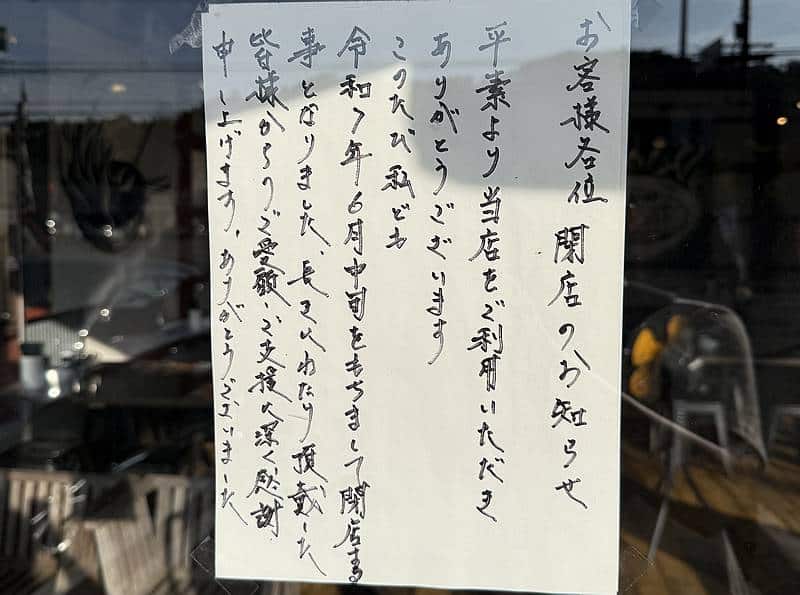 お客様各位 閉店のお知らせ
平素より当店をご利用いただき
ありがとうございます
このたび私ども
令和7年6月中旬をもちまして閉店する
事となりました、長きにわたり頂戴した
皆様からのご愛顧・ご支援に深く感謝
申し上げます、ありがとうございました